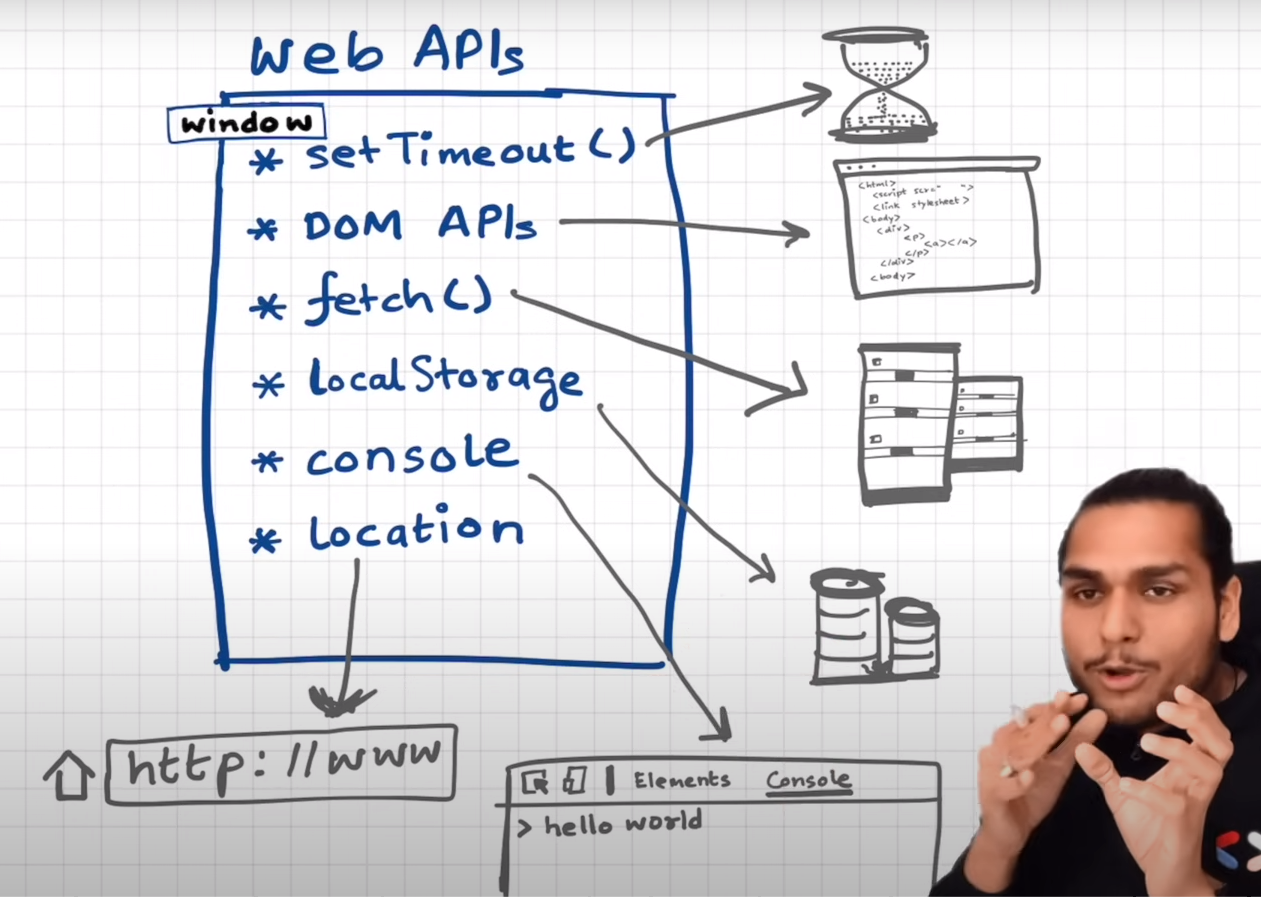 Web APIs
window
* setTimeout()
* DOM APIs
* fetch()
* localStorage
* console
* location
<html>
<script scr=" ">
<link stylesheet>
<body>
<div>
<p>
<a></a>
</p>
</div>
<body>
http://www
Elements Console
> hello world